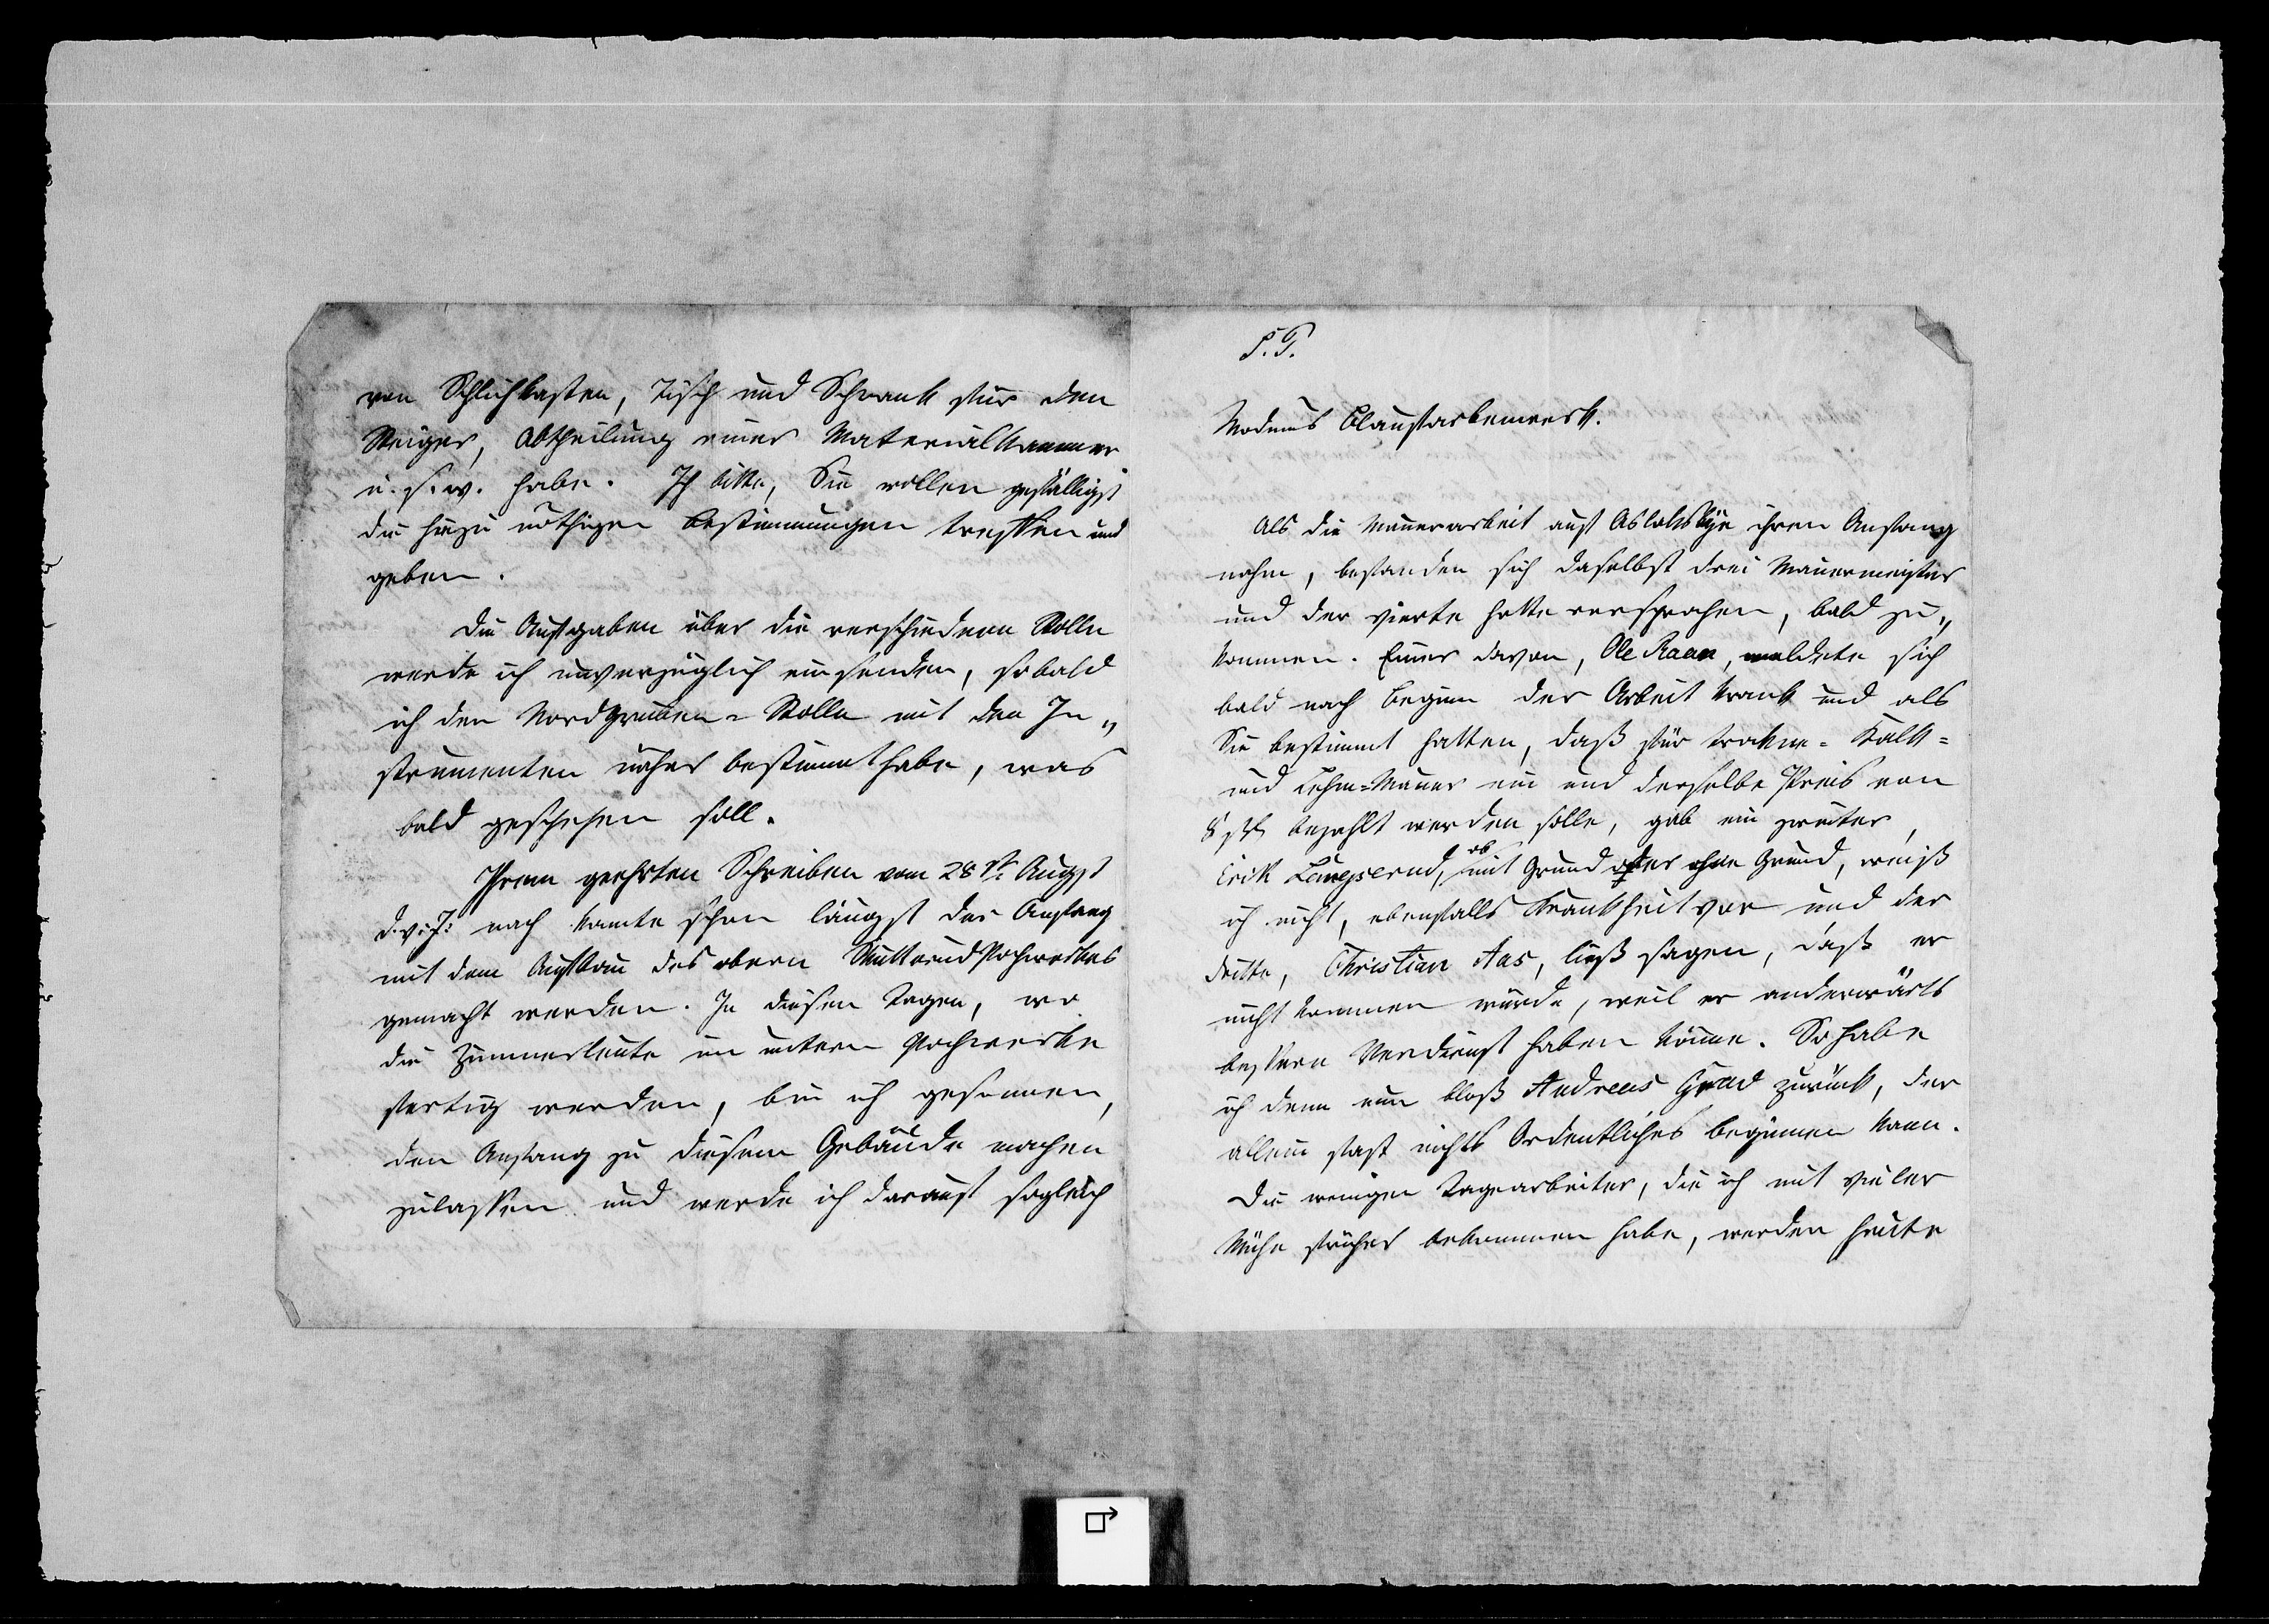 von Schlichkasten, Tisch und Schrank für den
Steiger, Abtheilung einer Materialkammer
u. s. w. habe. Ich bitte, Sie wollen gefälligst
die hiezu nöthigen Bestimmungen treffen und
geben.
Die Aufgaben über die verschiedenen Stolln
werde ich unverzüglich einsenden, sobald
ich den Nordgruben-Stolln mit den In„
strumenten näher bestimmt habe, was
bald geschehen soll.
Ihrem geehrten Schreiben vom 28st. Augst
d. v. J. nach konnte schon längst der Anfang
mit dem Aufbau des obern Skutterudpochwerkes
gemacht werden. In diesen Tagen, wo
die Zimmerleute im untern Pochwerke
fertig werden, bin ich gesonnen,
den Anfang zu diesem Gebäude machen
zulassen und werde ich darauf sogleich
P. T.
Modums Blaufarbenwerk.
Als die Mauerarbeit auf Aslaksbye ihren Anfang
nahm, befanden sich daselbst drei Mauermeister
und der vierte hatte versprochen, bald zu„
kommen. Einer davon, Ole Raaen, meldete sich
bald nach Beginn der Arbeit krank und als
Sie bestimmt hatten, daß für trockne- Kalk-
und Lehm-Mauer ein und derselbe Preis von
8 ß bezahlt werden solle, gab ein zweiter,
Erik, ob mit Grund oder ohne Grund, weiß
ich nicht, ebenfalls Krankheit vor und der
dritte, Christian Aas, ließ sagen, daß er
nicht kommen würde, weil er anderwärts
bessern Verdienst haben könne. So habe
ich denn nun bloß Andreas Grud zurück, der
allein fast nichts Ordentliches beginnen kann.
Die wenigen Tagearbeiter, die ich mit vieler
Mühe früher bekommen habe, werden heute